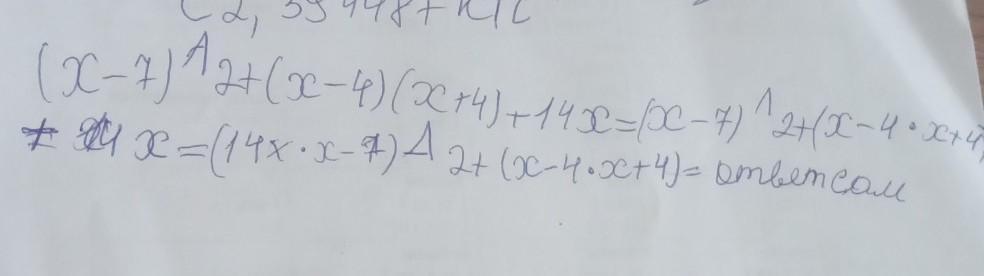 (x-7)^2+(x-4)(x+4)+14x=(x-7)^2+(x-4·x+4)
x=(14x·x-7)^2+(x-4·x+4)=ответ сам